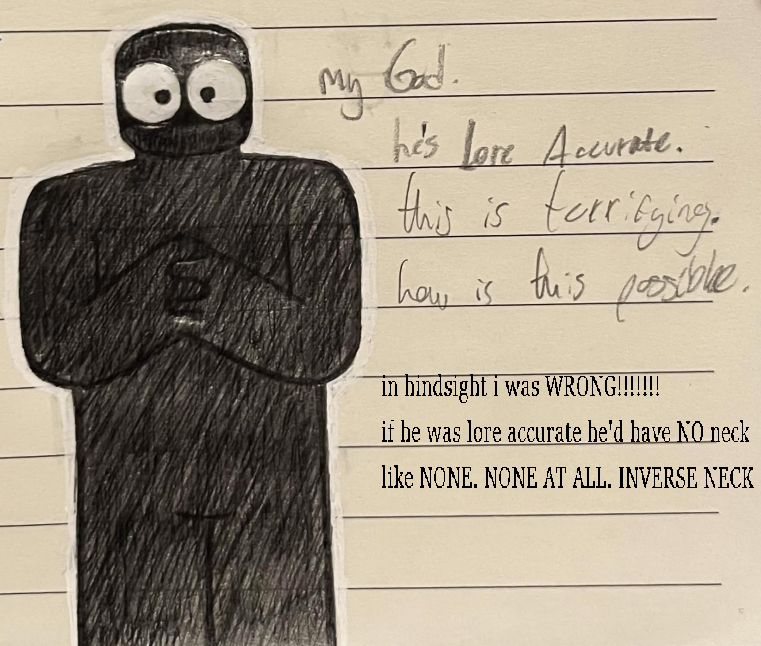 my God.
he's Lore Accurate.
this is terrifying.
how is this possible.
in hindsight i was WRONG!!!!!!!
if he was lore accurate he'd have NO neck
like NONE. NONE AT ALL. INVERSE NECK